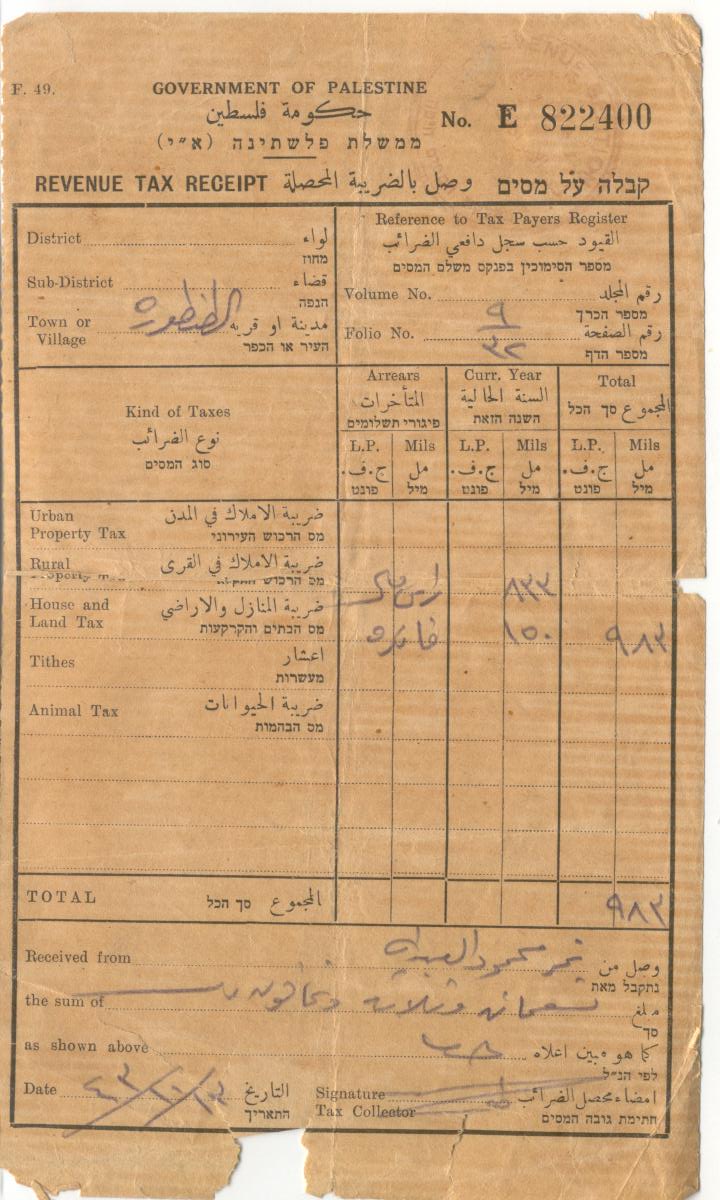 F. 49.
GOVERNMENT OF PALESTINE
حكومة فلسطين
ממשלת פלשתינה (א״י)
No. E 822400
REVENUE TAX RECEIPT وصل بالضريبة المحصلة קבלה על מסים
District لواء
מחוז
Sub-District قضاء
הנפה
Town or Village الطنطورة مدينة او قرية
העיר או הכפר
Reference to Tax Payers Register
القيود حسب سجل دافعي الضرائب
מספר הסימוכין בפנקס משלם המסים
Volume No. ٩ رقم المجلد
מספר הכרך
Folio No. ٣٢ رقم الصفحة
מספר הדף
Kind of Taxes
نوع الضرائب
סוג המסים
Arrears
المتأخرات
פיגורי תשלומים
Curr. Year
السنة الحالية
השנה הזאת
Total
المجموع סך הכל
L.P. Mils L.P. Mils L.P. Mils
ج.ف. مل ج.ف. مل ج.ف. مل
פונט מיל פונט מיל פונט מיל
Urban ضريبة الاملاك في المدن
Property Tax מס הרכוש העירוני
Rural ضريبة الاملاك في القرى
Property מס הרכוש
٨٣٣
House and ضريبة المنازل والاراضي
Land Tax מס הבתים והקרקעות
١٥٠ ٩٨٣
Tithes اعشار
מעשרות
Animal Tax ضريبة الحيوانات
מס הבהמות
TOTAL المجموع סך הכל ٩٨٣
Received from نمر محمود وصل من
נתקבל מאת
the sum of تسعمائة وثلاثة وثمانون مبلغ
סך
as shown above كما هو مبين اعلاه
לפי הנ״ל
Date التاريخ
התאריך
Signature امضاء محصل الضرائب
Tax Collector חתימת גובה המסים